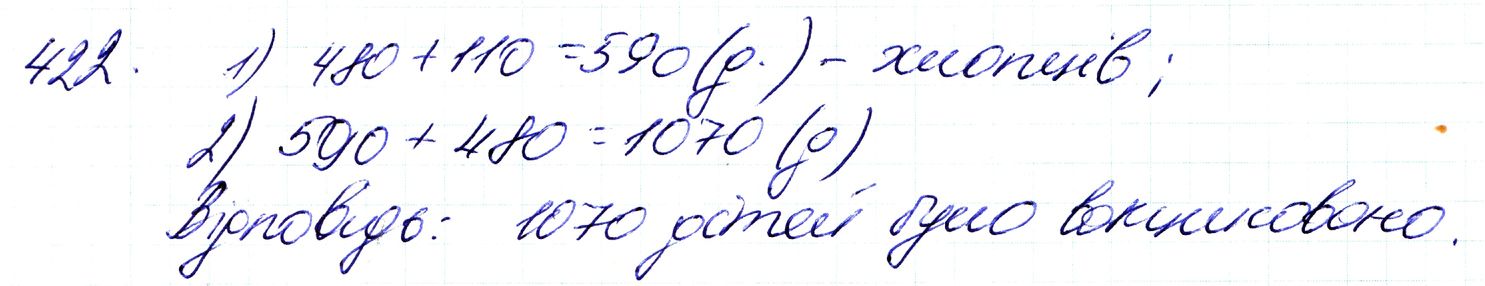 422. 1) 480 + 110 = 590 (д.) – хлопців;
2) 590 + 480 = 1070 (д)
Відповідь: 1070 дітей було вакциновано.